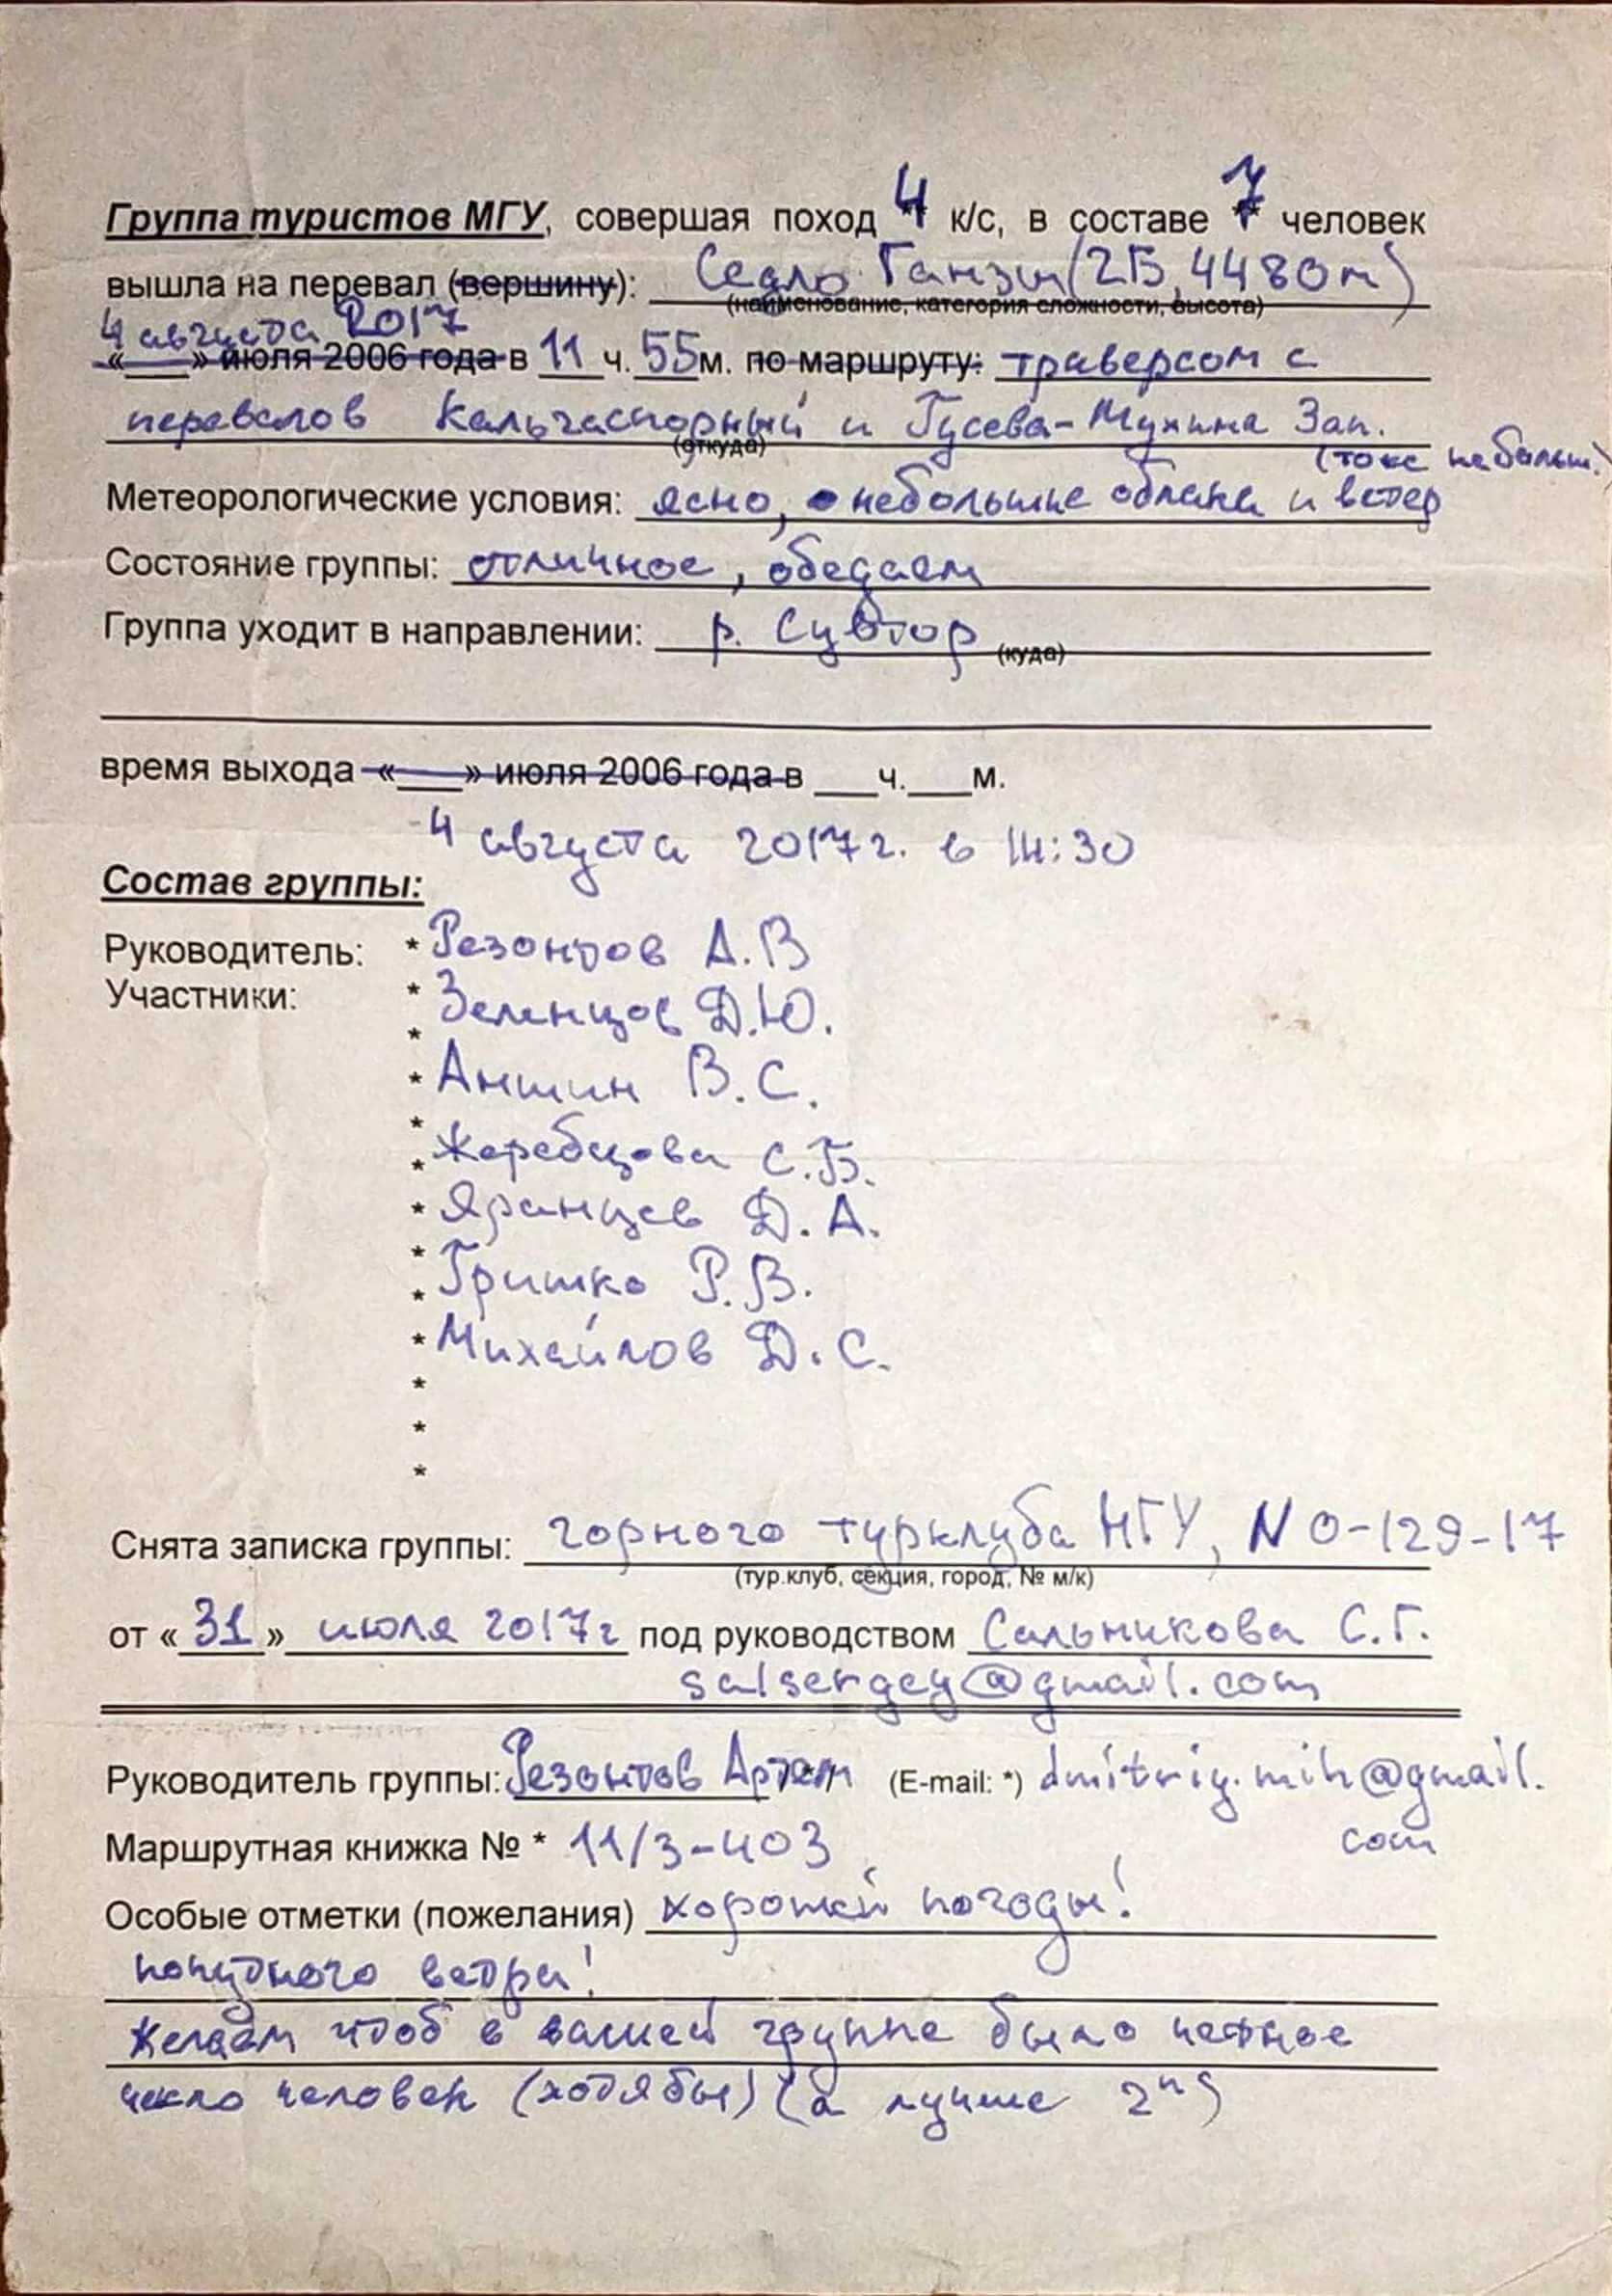 Группа туристов МГУ, совершая поход 4 к/с, в составе 7 человек
вышла на перевал (вершину): Седло Ганзы (2Б, 4480м)
(наименование, категория сложности, высота)
4 августа 2017
«___» июля 2006 года в 11 ч. 55 м. по маршруту: траверсом с
перевалов Кальчаспорный и Гусева-Мухина Зап.
(откуда)
(тоже небольш.)
Метеорологические условия: ясно, небольшие облака и ветер
Состояние группы: отличное, обедаем
Группа уходит в направлении: р. Сувтор
(куда)
время выхода «___» июля 2006 года в ___ч.___м.
4 августа 2017г. в 14:30
Состав группы:
Руководитель: * Резонтов А.В
Участники: * Зеленцов Д.Ю.
*
* Аншин В.С.
*
* Жеребцова С.Б.
* Яранцев Д.А.
*
* Гришко Р.В.
* Михайлов Д.С.
*
*
*
Снята записка группы: горного турклуба НГУ, N 0-129-17
(тур.клуб, секция, город, № м/к)
от «31» июля 2017г под руководством Сальникова С.Г.
salsergey@gmail.com
Руководитель группы: Резонтов Артем (E-mail: *) dmitriy.mih@gmail.
com
Маршрутная книжка № * 11/3-403
Особые отметки (пожелания) хорошей погоды!
попутного ветра!
Желаем чтоб в вашей группе было четное
число человек (хотябы) (а лучше 2ⁿ)